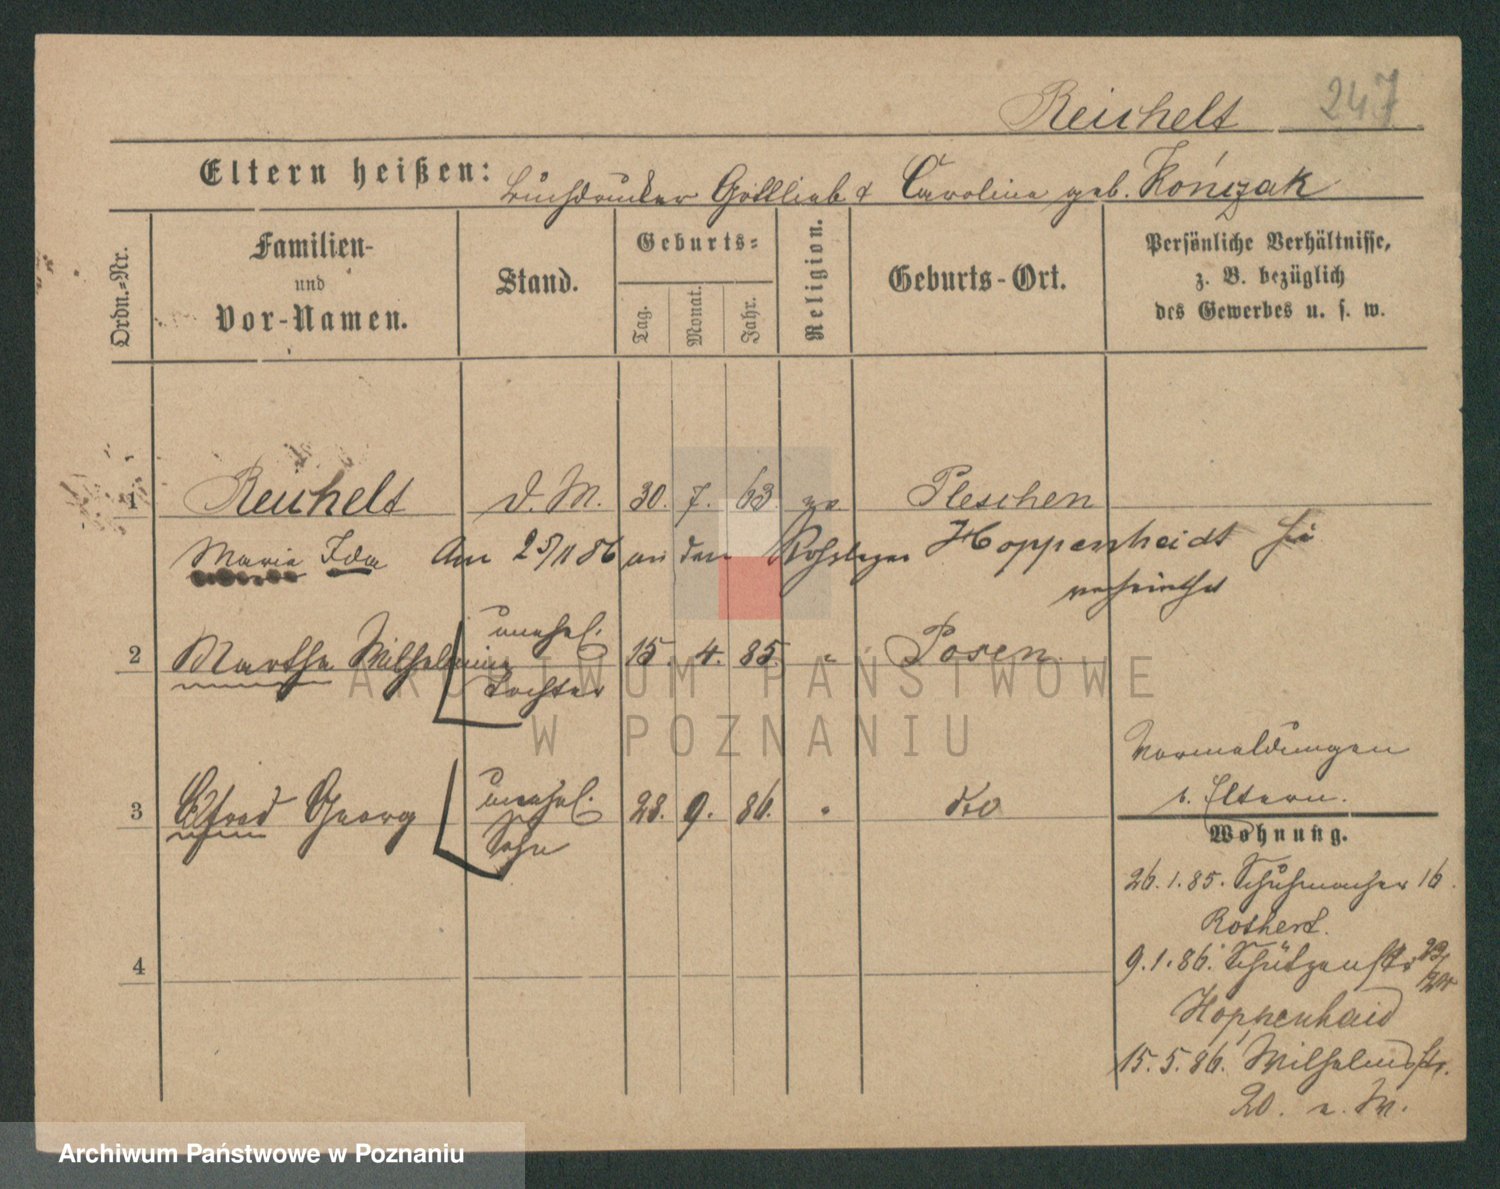 Reichelt 247
Eltern heißen: Buchdrucker Gottlieb & Carolina geb. Kończak
Ordn.=Nr.
Familien-
und
Vor-Namen.
Stand.
Geburts=
Tag.
Monat.
Jahr.
Religion.
Geburts-Ort.
Persönliche Verhältnisse,
z. B. bezüglich
des Gewerbes u. s. w.
1 Reichelt d. M. 30. 7. 63. Pleschen
Marie Ida Am 25/11 86 an den Hoppenheidt
verheirathet
2 Martha Wilhelmine unehel. Tochter 15. 4. 85. " Posen
3 Alfred Georg unehel. Sohn 28. 9. 86. " dto
4
Vormeldungen
b. Eltern.
Wohnung.
26.1.85. Schuhmacher 16
Rothert.
9.1.86. Schützenstr
Hoppenhaid
15.5.86. Wilhelmsstr.
20. M.
ARCHIWUM PAŃSTWOWE
W POZNANIU
Archiwum Państwowe w Poznaniu